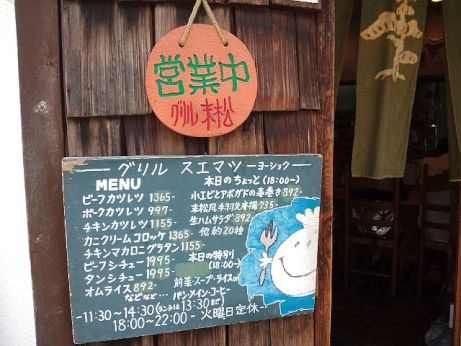 営業中
グリル 末松
グリル スエマツ ーヨーショクー
MENU
ビーフカツレツ 1365-
ポークカツレツ 997-
チキンカツレツ 1155-
カニクリームコロッケ 1365-
チキンマカロニグラタン 1155-
ビーフシチュー 1995-
タンシチュー 1995-
オムライス 892-
などなど…
本日のちょっと (18:00~)
小エビとアボガドの春巻き 892-
末松風 735-
生ハムサラダ 892-
他 約20種
本日の特別
(18:00~)
前菜・スープ・ライスor
パン・メイン・コーヒー
-11:30~14:30 (ランチは13:30まで)
18:00~22:00 - 火曜日定休-